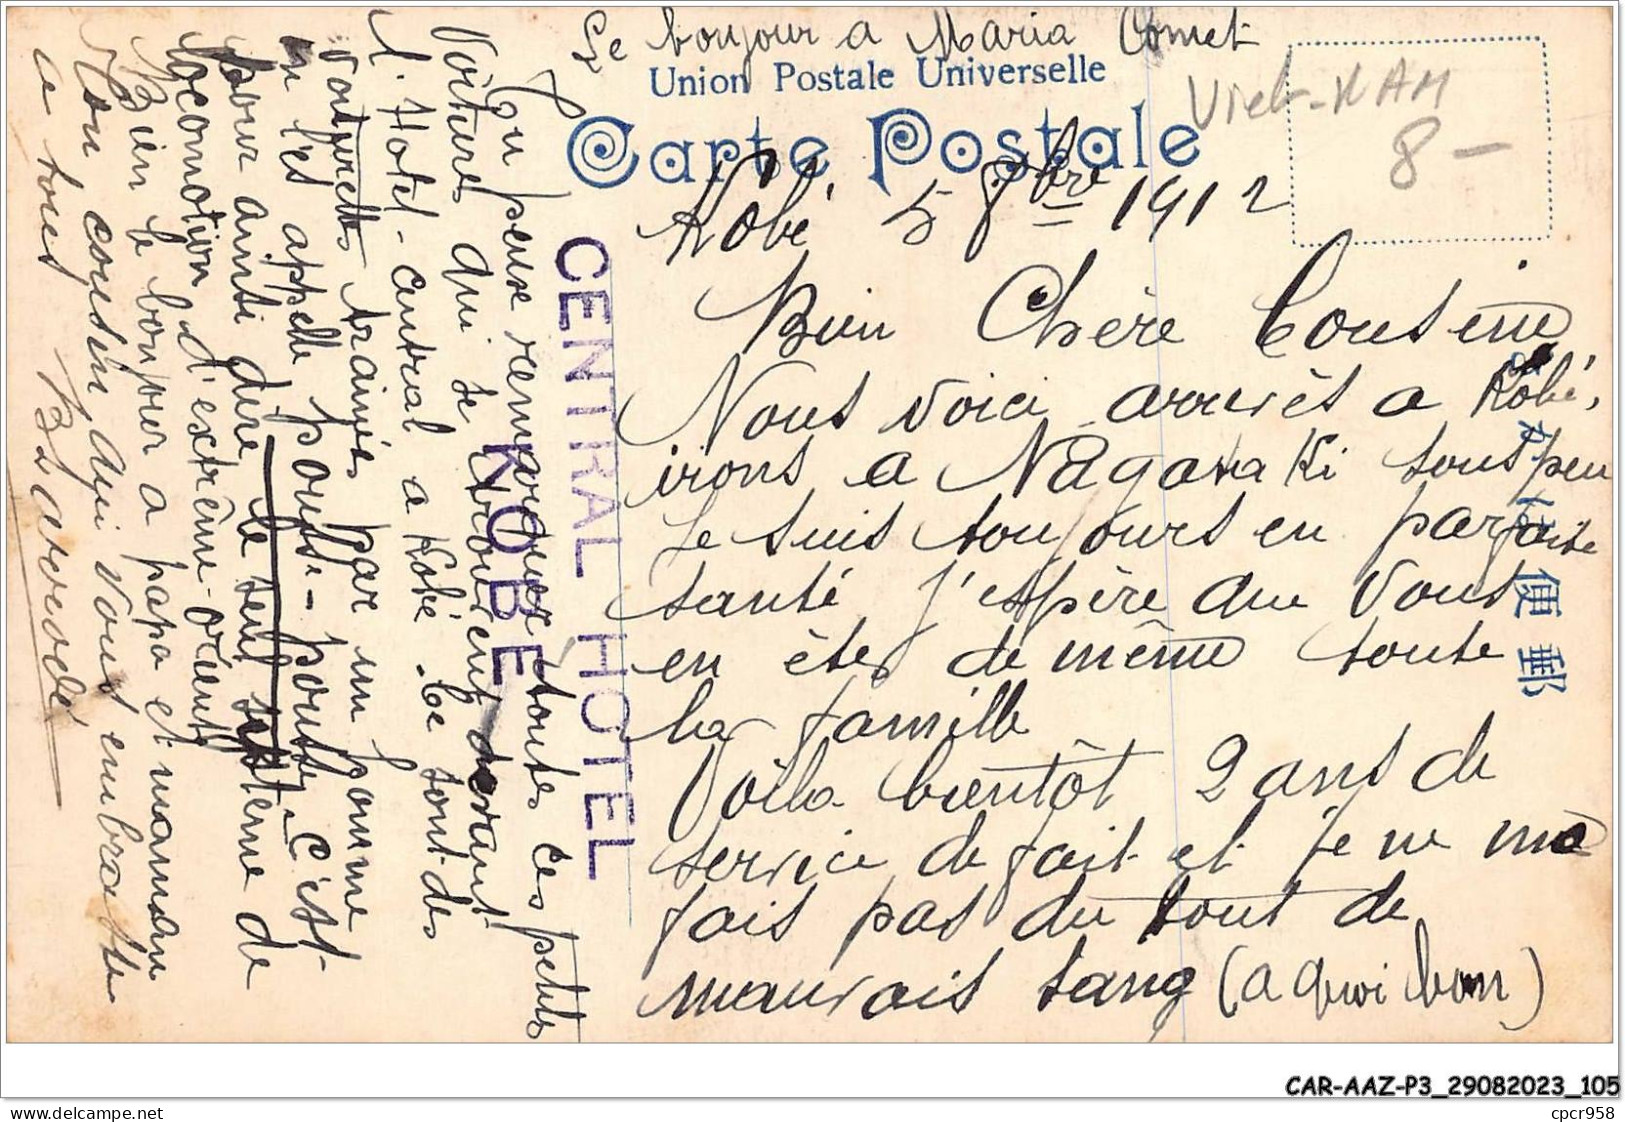 Le bonjour a Maria Comet
Union Postale Universelle
Carte Postale
Viet-NAM
8 -
Kobé 5 8bre 1912
Bien Chère Cousine
Nous voici arrivés a Kobé,
irons a Nagasaki sous peu
Je suis toujours en parfaite
santé j'espère que Vous
en êtes de même toute
la famille
Voila bientôt 2 ans de
service de fait et je ne me
fais pas du tout de
mauvais sang (a quoi bon)
郵便
CENTRAL HOTEL
KOBE
Tu peux remarquer toutes ces petites
Voitures qui se trouvent devant
l'Hotel-central a Kobé. Ce sont des
voiturettes trainées par un homme
on les appelle pousse-pousse, c'est
pour ainsi dire le seul système de
locomotion d'extrême-orient
Bien le bonjour a papa et maman
Ton cousin qui Vous embrasse
a tous
CAR-AAZ-P3_29082023_105
delcampe.net
cpcr958